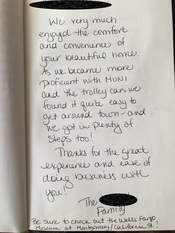 We very much
enjoyed the comfort
and convenience of
your beautiful home.
As we became more
proficient with MUNI
and the trolley cars we
found it quite easy to
get around town - and
we got in plenty of
steps too!
Thanks for the great
experience and ease of
doing business with
you!
The
Family
Be sure to check out the Wells Fargo
Museum at Montgomery/California St.